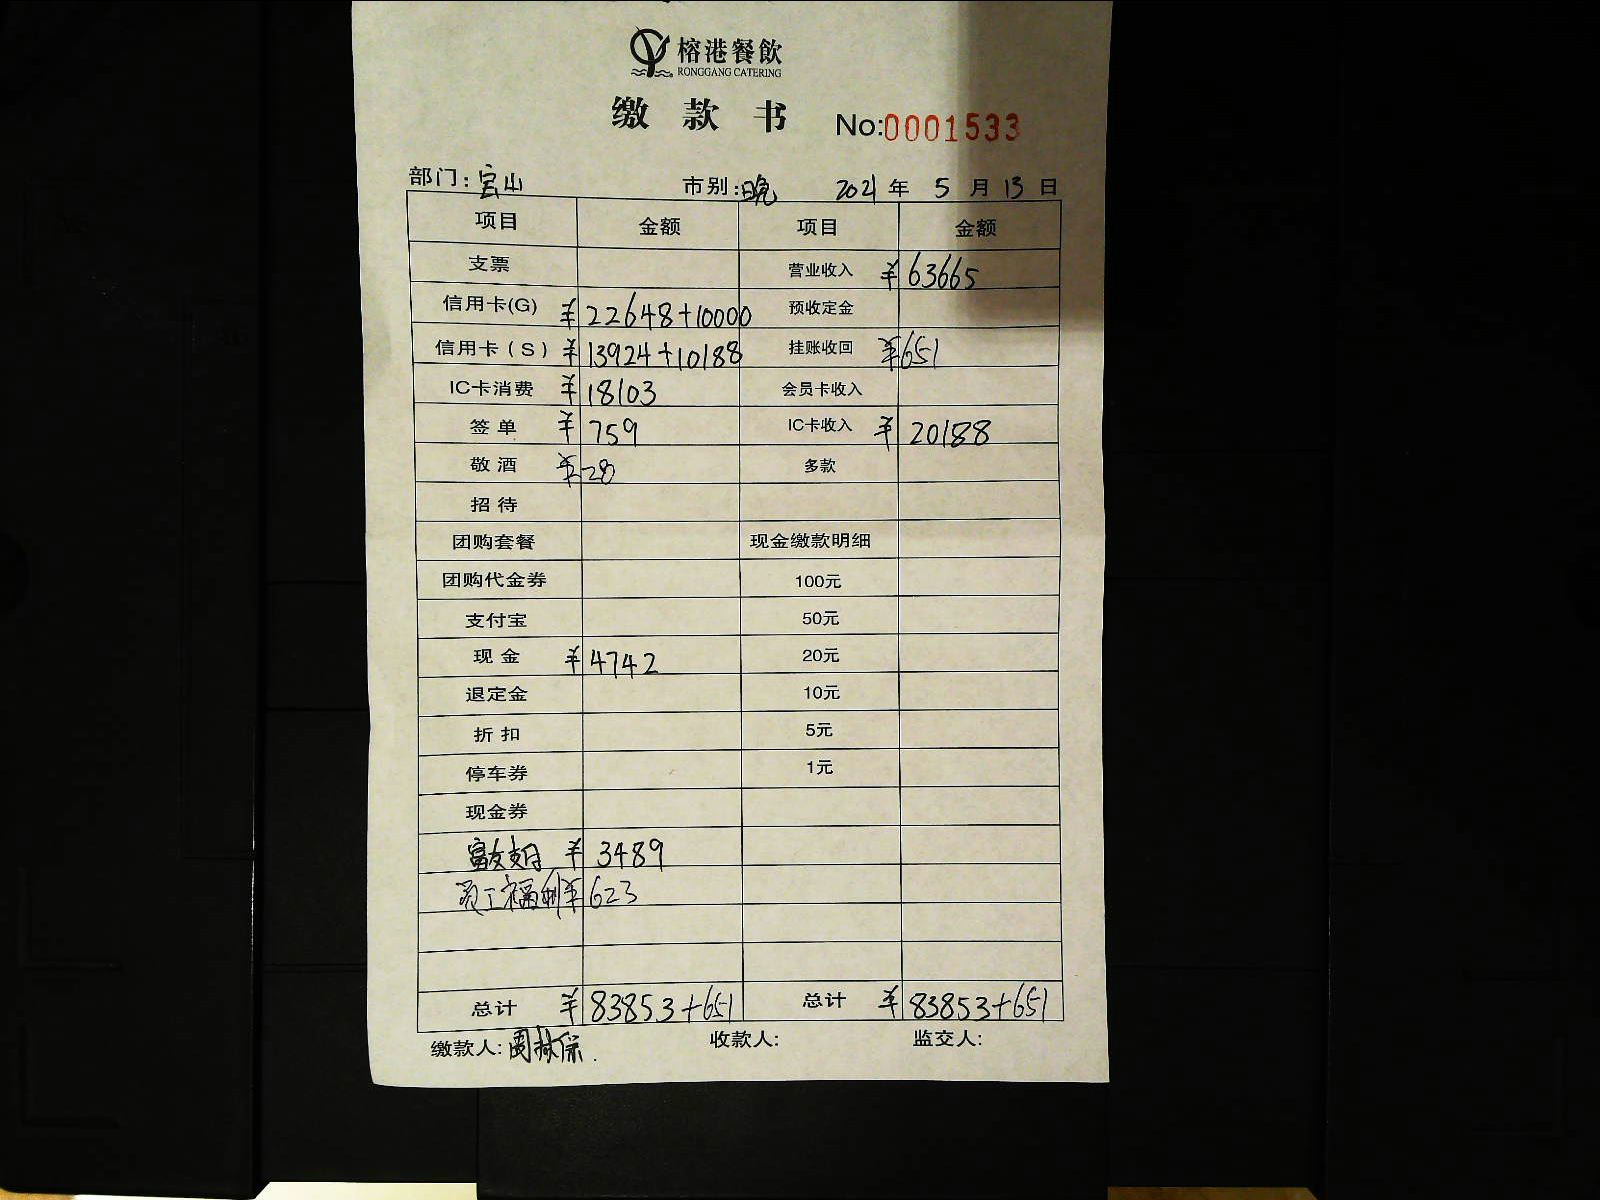 榕港餐飲
RONGGANG CATERING
缴款书 No:0001533
部门:宝山 市别:晚 2021年5月13日
项目 金额 项目 金额
支票 营业收入 ¥63665
信用卡(G) ¥22648+10000 预收定金
信用卡(S) ¥13924+10188 挂账收回 ¥651
IC卡消费 ¥18103 会员卡收入
签单 ¥759 IC卡收入 ¥20188
敬酒 ¥28 多款
招待
团购套餐 现金缴款明细
团购代金券 100元
支付宝 50元
现金 ¥4742 20元
退定金 10元
折扣 5元
停车券 1元
现金券
富友支付 ¥3489
员工福利 ¥623
总计 ¥83853+651 总计 ¥83853+651
缴款人: 收款人: 监交人: